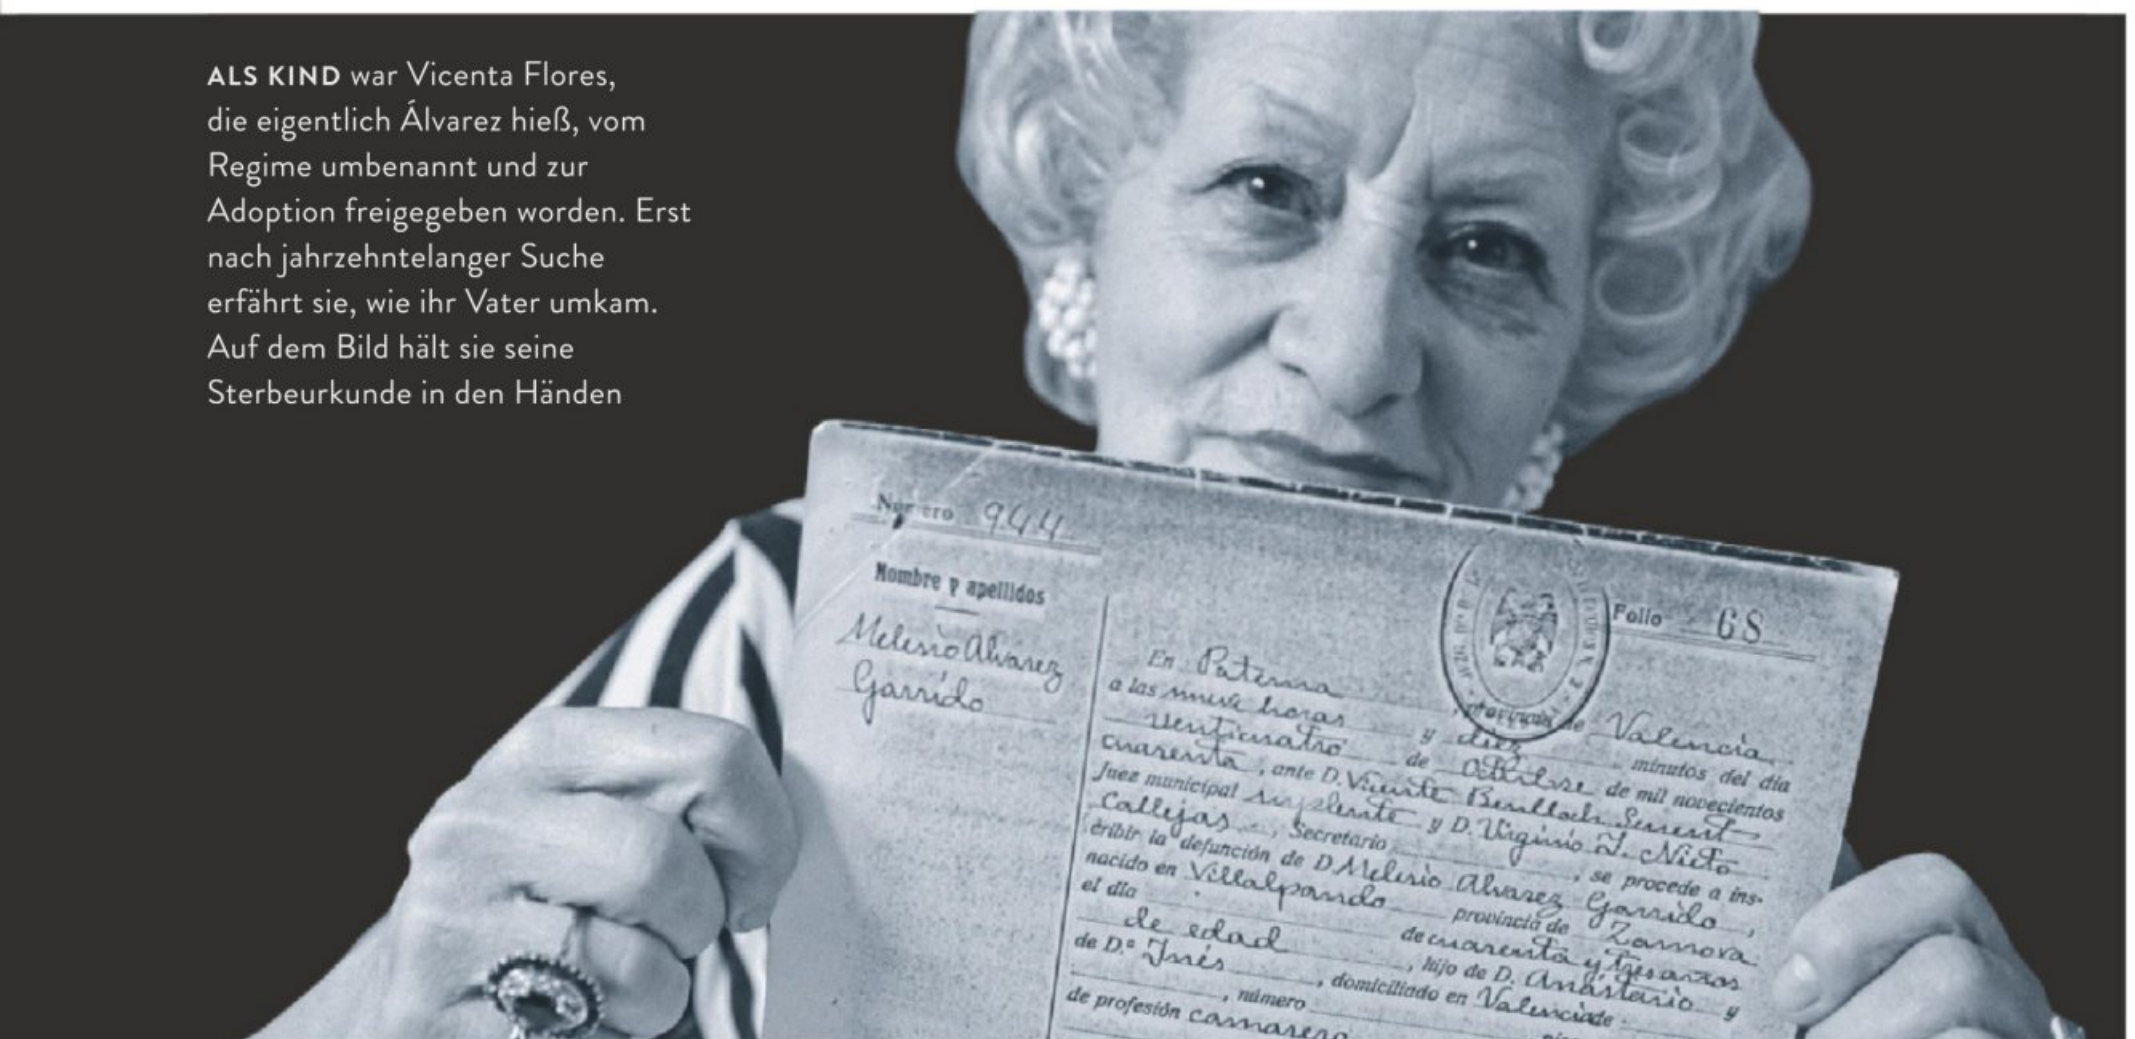 ALS KIND war Vicenta Flores,
die eigentlich Álvarez hieß, vom
Regime umbenannt und zur
Adoption freigegeben worden. Erst
nach jahrzehntelanger Suche
erfährt sie, wie ihr Vater umkam.
Auf dem Bild hält sie seine
Sterbeurkunde in den Händen
Número 944
Nombre y apellidos
Melesio Alvarez
Garrido
Folio 68
En Paterna, provincia de Valencia
a las nueve horas y diez minutos del día
venticuatro de Octubre de mil novecientos
cuarenta, ante D. Vicente Benlloch
Juez municipal suplente y D. Virginio Y. Nieto
Callejas, Secretario, se procede a ins-
cribir la defunción de D Melesio Alvarez Garrido,
nacido en Villalpando provincia de Zamora
el día de cuarenta y tres años
de edad, hijo de D. Anastasio y
de D.ª Inés, domiciliado en Valencia de
, número
de profesión camarero